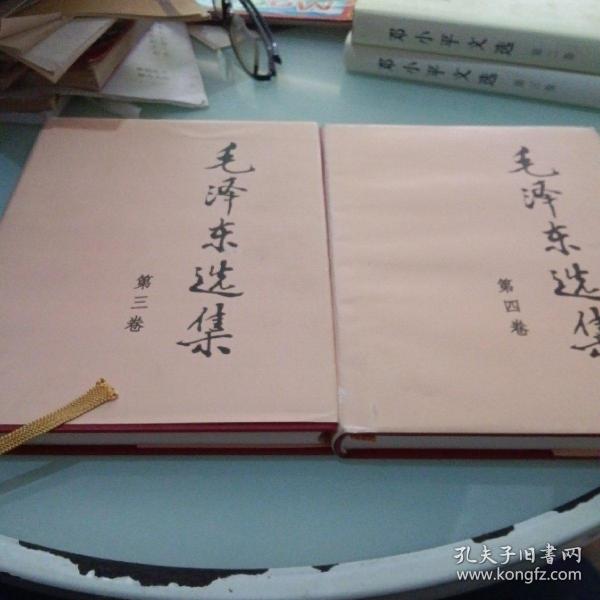 邓小平文选 第二卷
邓小平文选 第三卷
毛泽东选集
第三卷
毛泽东选集
第四卷
孔夫子旧書网
www.kongfz.com